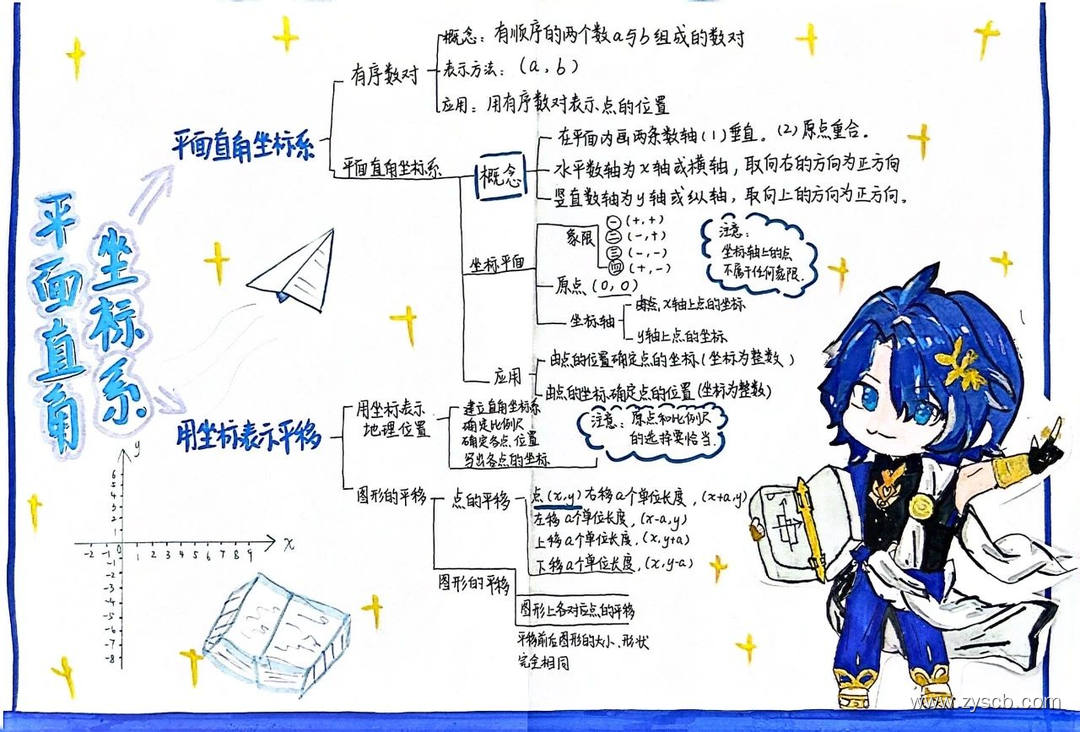 平面直角
坐标系
平面直角坐标系
有序数对
概念：有顺序的两个数a与b组成的数对
表示方法：(a,b)
应用：用有序数对表示点的位置
平面直角坐标系
概念
在平面内画两条数轴(1)垂直。(2)原点重合。
水平数轴为x轴或横轴，取向右的方向为正方向
竖直数轴为y轴或纵轴，取向上的方向为正方向。
坐标平面
象限
一(+,+)
二(-,+)
三(-,-)
四(+,-)
注意：
坐标轴上的点
不属于任何象限.
原点(0,0)
坐标轴
由点,x轴上点的坐标
y轴上点的坐标
应用
由点的位置确定点的坐标.(坐标为整数)
由点的坐标确定点的位置(坐标为整数)
用坐标表示平移
用坐标表示
地理位置
建立直角坐标系
确定比例尺
确定各点位置
写出各点的坐标
注意：原点和比例尺
的选择要恰当.
图形的平移
点的平移
点(x,y)右移a个单位长度，(x+a,y)
左移a个单位长度，(x-a,y)
上移a个单位长度，(x,y+a)
下移a个单位长度，(x,y-a)
图形的平移
图形上各对应点的平移
平移前后图形的大小、形状
完全相同
y
6
5
4
3
2
1
-2 -1 0 1 2 3 4 5 6 7 8 9
x
-1
-2
-3
-4
-5
-6
-7
-8
www.zyscb.com